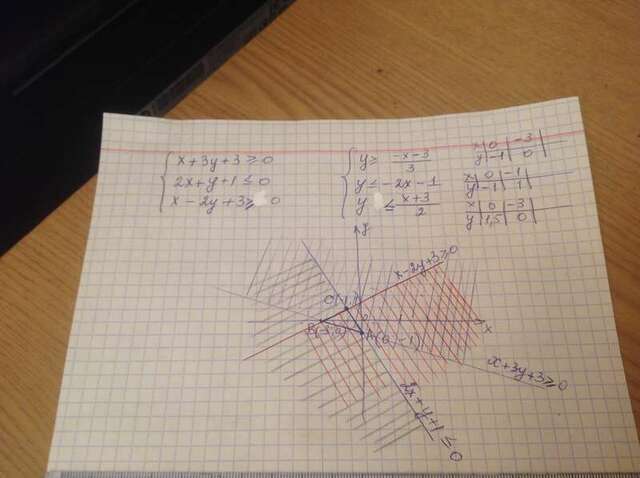 x+3y+3≥0
2x+y+1≤0
x-2y+3≥0
y≥ -x-3/3
y≤-2x-1
y ≤ x+3/2
x 0 -3
y -1 0
x 0 -1
y -1 1
x 0 -3
y 1,5 0
y
x-2y+3≥0
x
A(0,-1)
x+3y+3≥0
2x+y+1≤0